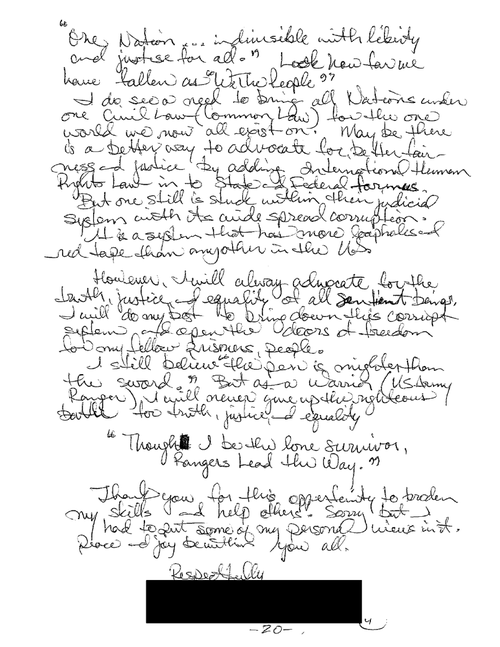 "One Nation ... indivisible with liberty
and justise for all." Look how far we
have fallen as "We The People"
I do see a need to bring all Nations under
one Civil Law (Common Law) for the one
world we now all exist on. May be there
is a better way to advocate for better fair-
ness and justice by adding International Human
Rights Law in to State and Federal formus.
But one still is stuck within their judicial
system with its wide spread corruption.
It is a system that has more loopholes and
red tape than any other in the U.S.
However, I will alway advocate for the
truth, justice, and equality of all sentient beings.
I will do my best to bring down this corrupt
system and open the doors of freedom
for my fellow prisoners, people.
I still believe "the pen is mighter than
the sword." But as a warrior (US Army
Ranger) I will never give up the righteous
battle for truth, justice, and equality
"Though I be the lone survivor,
Rangers Lead the Way."
Thank you, for this opportunity to broden
my skills and help others. Sorry but I
had to put some of my personal views in it.
Peace and joy be within you all.
Respectfully
-20-